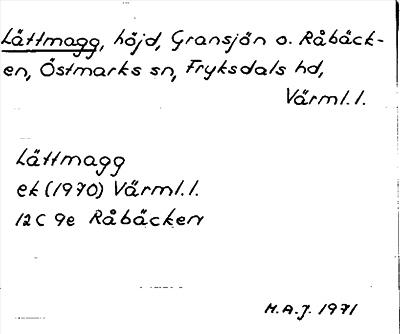 Lättmagg, höjd, Gransjön o. Råbäck-
en, Östmarks sn, Fryksdals hd,
Värml. l.
Lättmagg
ek (1970) Värml. l.
12C 9e Råbäcken
H.A.J. 1971